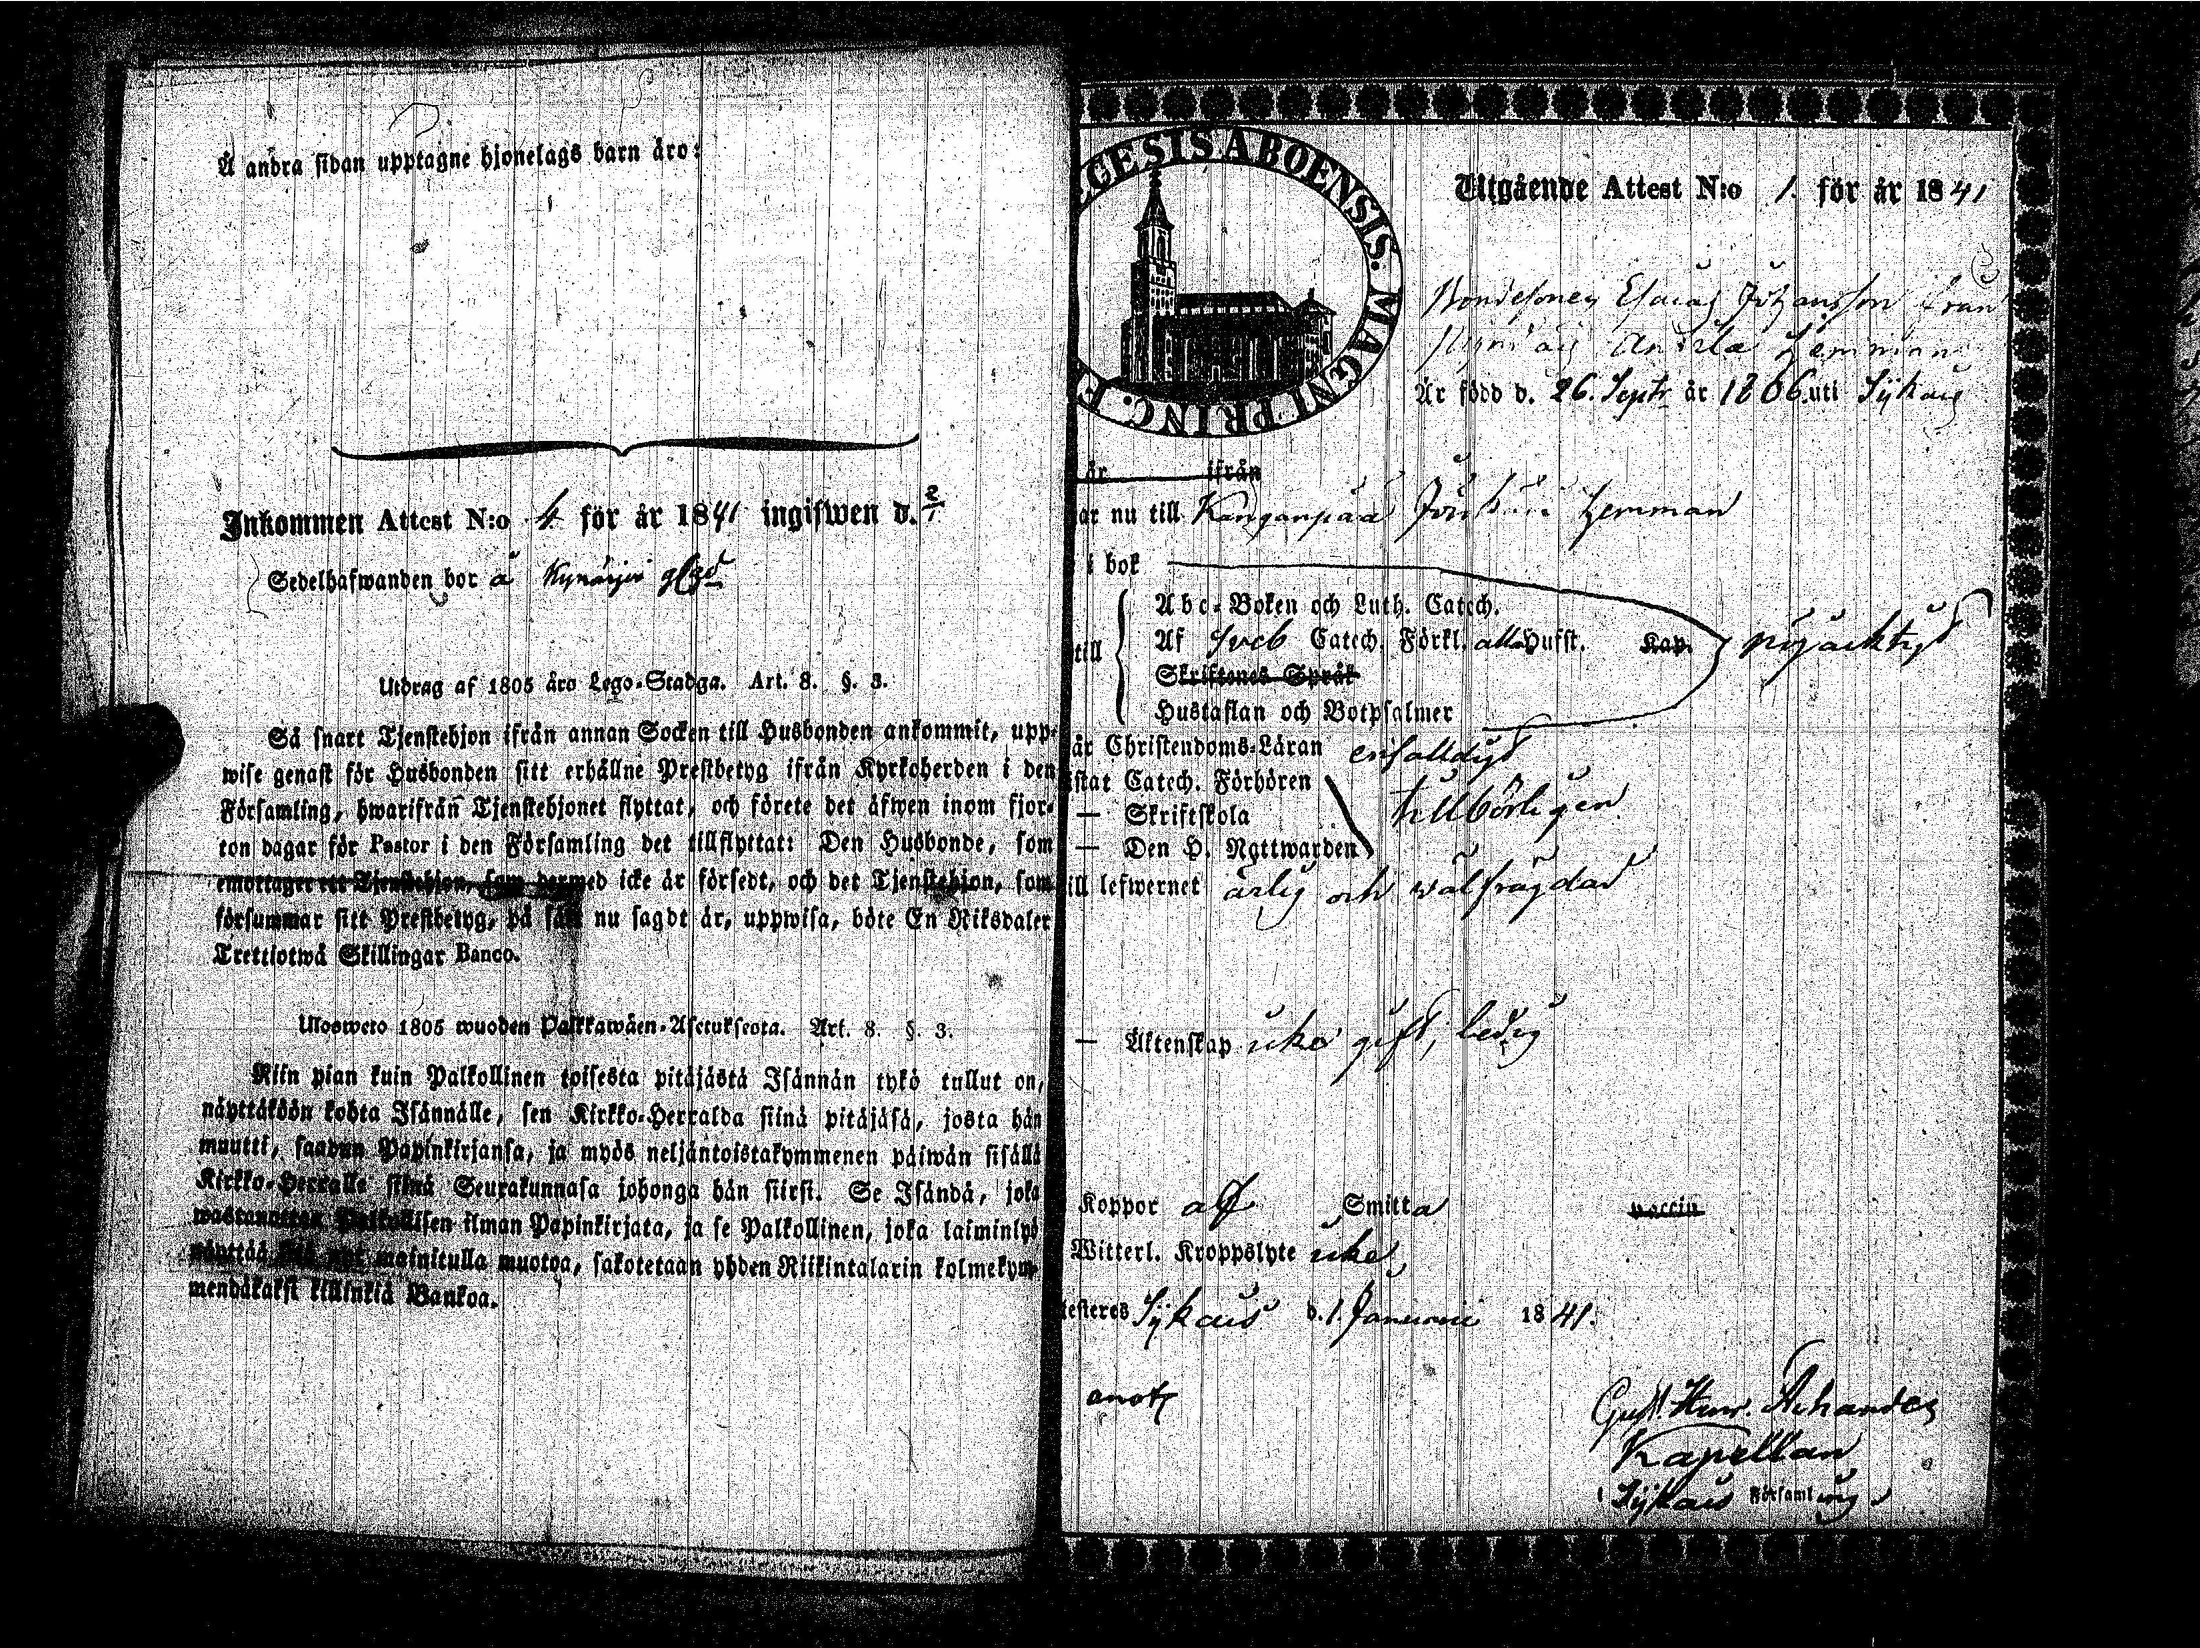 Å andra sidan upptagne hjonelags barn äro:
Inkommen Attest N:o 4 för år 1841 ingifwen d. 2/1
Sedelhafwanden bor å Kynäsjerwi
Utdrag af 1805 åro Lego-Stadga. Art. 8. §. 3.
Så snart Tjenstehjon ifrån annan Socken till Husbonden ankommit, upp-
wise genast för Husbonden sitt erhållne Prestbetyg ifrån Kyrkoherden i den
Församling, hwarifrån Tjenstehjonet flyttat, och förete det äfwen inom fjor-
ton dagar för Pastor i den Församling det tillflyttat: Den Husbonde, som
emottager ett Tjenstehjon, som dermed icke är försedt, och det Tjenstehjon, som
försummar sitt Prestbetyg, på sätt nu sagdt är, uppwisa, böte En Riksdaler
Trettiotwå Skillingar Banco.
Ulosweto 1805 wuoden Palkkawäen-Asetuksesta. Art. 8. §. 3.
Niin pian kuin Palkollinen toisesta pitäjästä Isännän tykö tullut on,
näyttäköön kohta Isännälle, sen Kirkko-Herralda siinä pitäjäsä, josta hän
muutti, saadun Papinkirjansa, ja myös neljäntoistakymmenen päiwän sisällä
Kirkko-Herralle siinä Seurakunnasa johonga hän siirsi. Se Isändä, joka
wastanottaa Palkollisen ilman Papinkirjata, ja se Palkollinen, joka laiminlyö
näyttää sitä nyt mainitulla muotoa, sakotetaan yhden Riikintalarin kolmekym-
mendäkaksi killinkiä Bankoa.
OECESIS ABOENSIS. MAGNI PRINC. F
Utgående Attest N:o 1. för år 1841
Bondesonen Esaias Johansson från
Anttila Hemman
Är född d. 26. Septr år 1806 uti Sijkais
år ifrån
ar nu till Kanganpää Hemman
i bok
till
Abc-Boken och Luth. Catech.
Af Sveb Catech. Förkl. alla Hufst. Kap. nöjacktigt
Skriftenes Språk
Hustaflan och Botpsalmer
är Christendoms-Läran enfalldigt
istat Catech. Förhören
— Skriftskola tillbörligen
— Den H. Nattwarden
ill lefwernet ärlig och wälfrägdad
— Äktenskap icke gift, ledig
Koppor af Smitta vaccin
Witterl. Kroppslyte icke
testeres Sijkais d. 1 Januarii 1841.
anot
Gust. Henr.
Kapellan
i Sijkais Församling